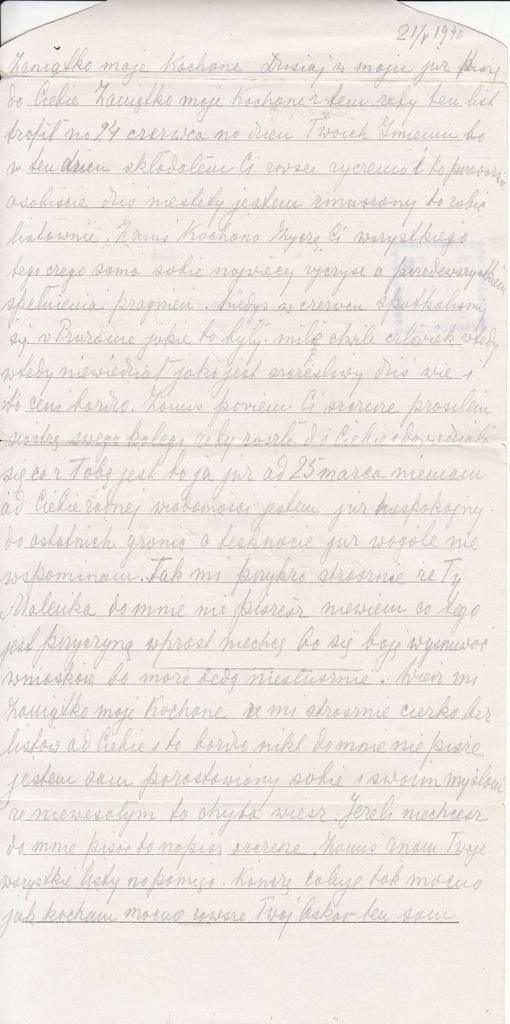 21/V 1940
Zaniątko moje Kochane Dzisiaj w maju już piszę
do Ciebie Zaniątko moje Kochane z tem rzeby ten list
trafił na 24 czerwca na dzień Twoich Imienin bo
w ten dzień składałem Ci zawsze rzyczenia i to
osobiście dziś niestety jestem zmuszony to robić
listownie. Kochana Rzyczę Ci wszystkiego
tego czego sama sobie najwięcej rzyczysz a przedewszystkiem
spełnienia pragnień. Kiedyś w czerwcu spotkaliśmy
się w jakie to były miłe chwile człowiek wtedy
wtedy niewiedział jaki jest szczęśliwy dziś wie i
to ceni bardzo. powiem Ci szczerze prosiłem
siostrę swego kolegi rzeby poszła do Ciebie i dowiedziała
się co z Tobą jest bo ja już od 25 marca niemam
od Ciebie rzadnej wiadomości jestem już niespokojny
do ostatnich granic o tesknocie już wogóle nie
wspominam. Tak mi przykro strasznie rze Ty
Maleńka do mnie nie piszesz niewiem co tego
jest przyczyną wprost niechcę bo się boję wysnuwać
wniosków bo morze będą niesłuszne. Wiesz mi
Zaniątko moje Kochane rze mi strasznie cięrzko bez
listów od Ciebie i to bardzo nikt do mnie nie pisze
jestem sam pozostawiony sobie i swoim myślom
rze niewesołym to chyba wiesz. Jerzeli niechcesz
do mnie pisać to napisz szczerze. znam Twoje
wszystkie listy na pamięć. Kończę całuję tak mocno
jak kocham mocno zawsze Twój Oskar ten sam